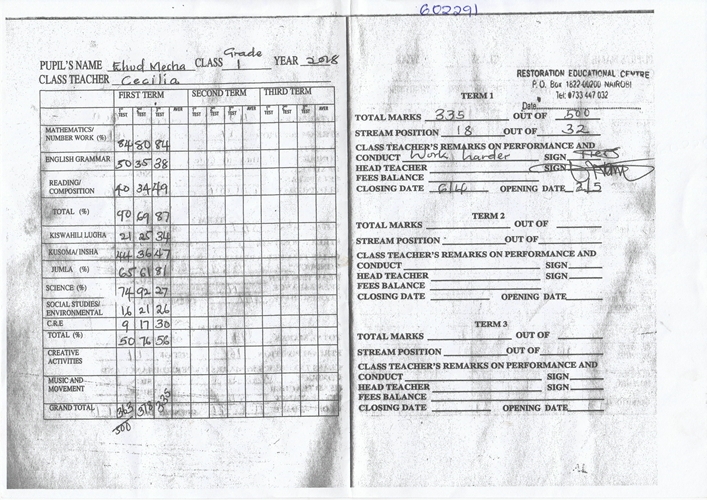 602291
PUPIL'S NAME Ehud Mecha CLASS Grade 1 YEAR 2018
CLASS TEACHER Cecilia
FIRST TERM SECOND TERM THIRD TERM
1ST TEST 2ND TEST 3RD TEST AVER 1ST TEST 2ND TEST 3RD TEST AVER 1ST TEST 2ND TEST 3RD TEST AVER
MATHEMATICS/
NUMBER WORK (%) 84 80 84
ENGLISH GRAMMAR 50 35 38
READING/
COMPOSITION 40 34 49
TOTAL (%) 90 69 87
KISWAHILI LUGHA 21 25 34
KUSOMA/INSHA 44 36 47
JUMLA (%) 65 61 81
SCIENCE (%) 74 92 27
SOCIAL STUDIES/
ENVIRONMENTAL 16 21 26
C.R.E 9 17 30
TOTAL (%) 50 76 56
CREATIVE
ACTIVITIES
MUSIC AND
MOVEMENT
GRAND TOTAL 363 378 335
500
RESTORATION EDUCATIONAL CENTRE
P. O. Box 1622-00200 NAIROBI
Tel: 0733 447 032
Date
TERM 1
TOTAL MARKS 335 OUT OF 500
STREAM POSITION 18 OUT OF 32
CLASS TEACHER'S REMARKS ON PERFORMANCE AND
CONDUCT Work harder SIGN
HEAD TEACHER SIGN
FEES BALANCE
CLOSING DATE 6/4 OPENING DATE 2/5
TERM 2
TOTAL MARKS OUT OF
STREAM POSITION OUT OF
CLASS TEACHER'S REMARKS ON PERFORMANCE AND
CONDUCT SIGN
HEAD TEACHER SIGN
FEES BALANCE
CLOSING DATE OPENING DATE
TERM 3
TOTAL MARKS OUT OF
STREAM POSITION OUT OF
CLASS TEACHER'S REMARKS ON PERFORMANCE AND
CONDUCT SIGN
HEAD TEACHER SIGN
FEES BALANCE
CLOSING DATE OPENING DATE